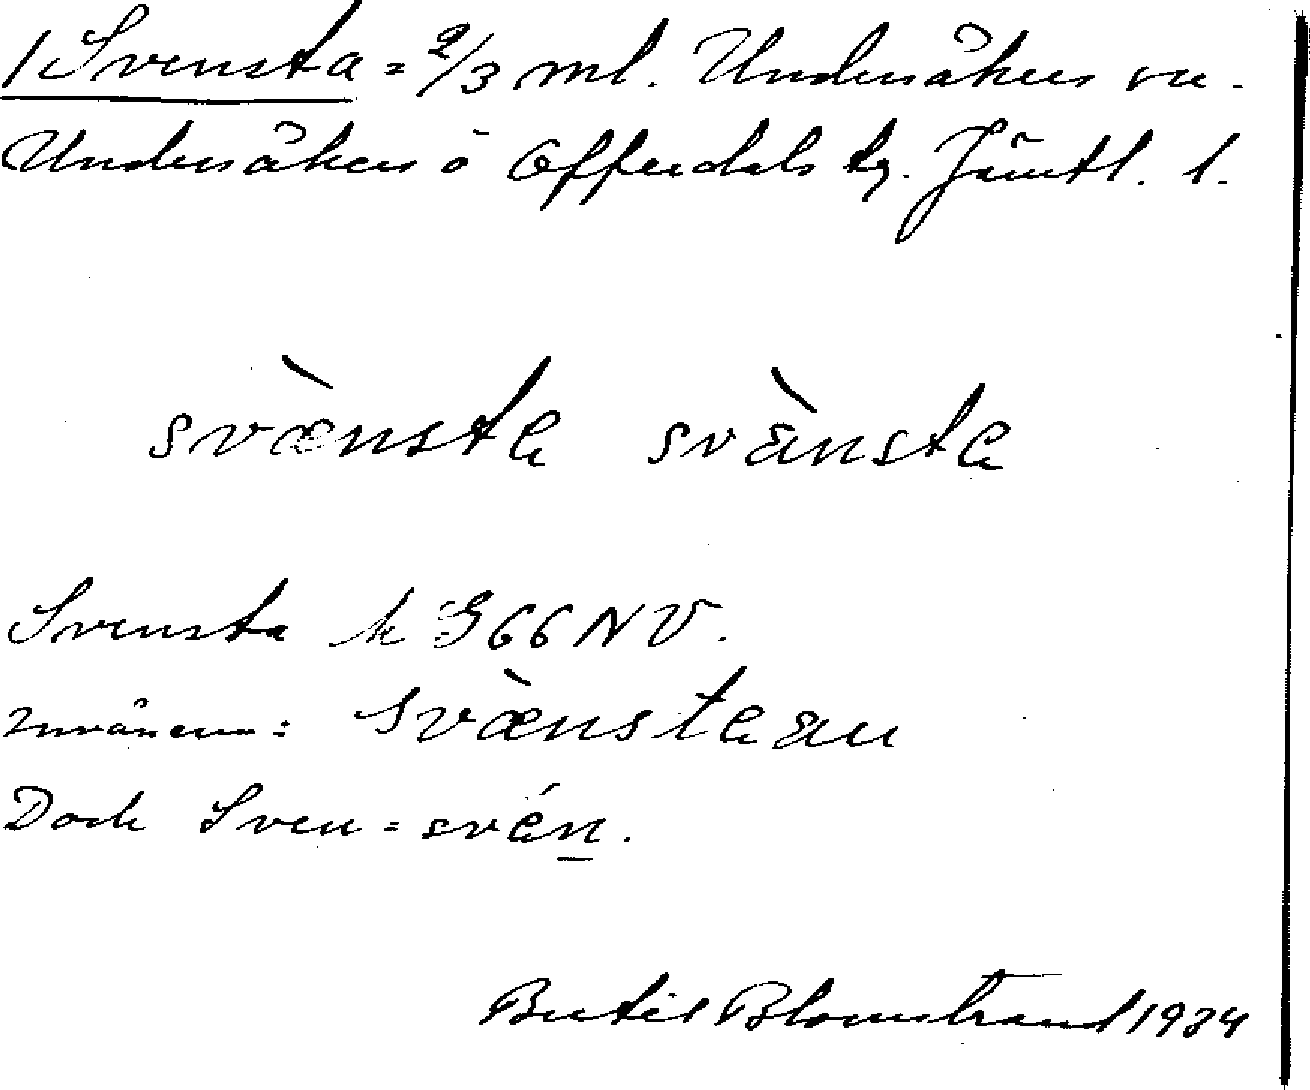 1 Svensta = 2/3 ml. Undersåkers sn.
Undersåkers o Offerdals tg. Jämtl. l.
svæ̀nsta svä̀nsta
Svensta k G66 NV.
invånarn:
Dock Sven = svén.
Bertil Blomstrand 1934